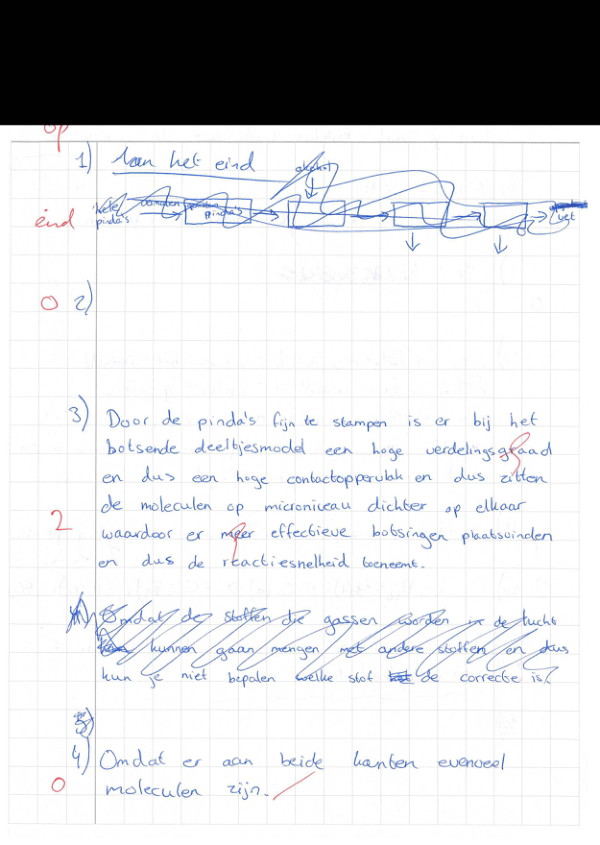 op
1) Aan het eind
alcohol
eind hele pinda's stampen pinda's vet
0 2)
3) Door de pinda's fijn te stampen is er bij het
botsende deeltjesmodel een hoge verdelingsgraad
en dus een hoge contactoppervlak en dus zitten
de moleculen op microniveau dichter op elkaar
2 waardoor er meer effectieve botsingen plaatsvinden
en dus de reactiesnelheid toeneemt.
Omdat de stoffen die gassen worden in de lucht
kunnen gaan mengen met andere stoffen en dus
kun je niet bepalen welke stof de correcte is.
4) Omdat er aan beide kanten evenveel
0 moleculen zijn.